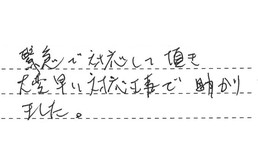 緊急で対応して頂き
大変早い対応工事で助かり
ました。